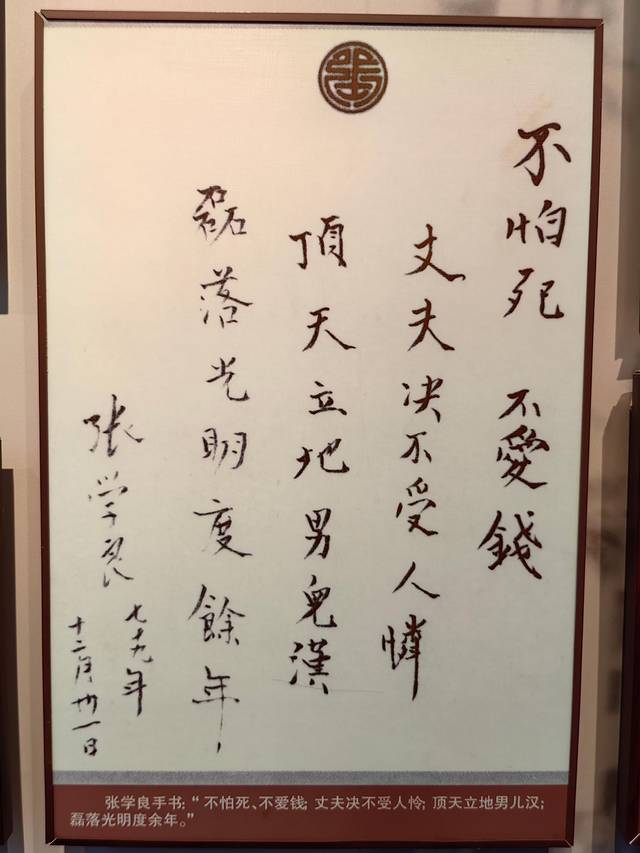 不怕死 不愛錢
丈夫决不受人憐
頂天立地男兒漢
磊落光明度餘年,
张学良
七十九年
十二月卅一日
张学良手书:“不怕死、不爱钱;丈夫决不受人怜;顶天立地男儿汉;
磊落光明度余年。”